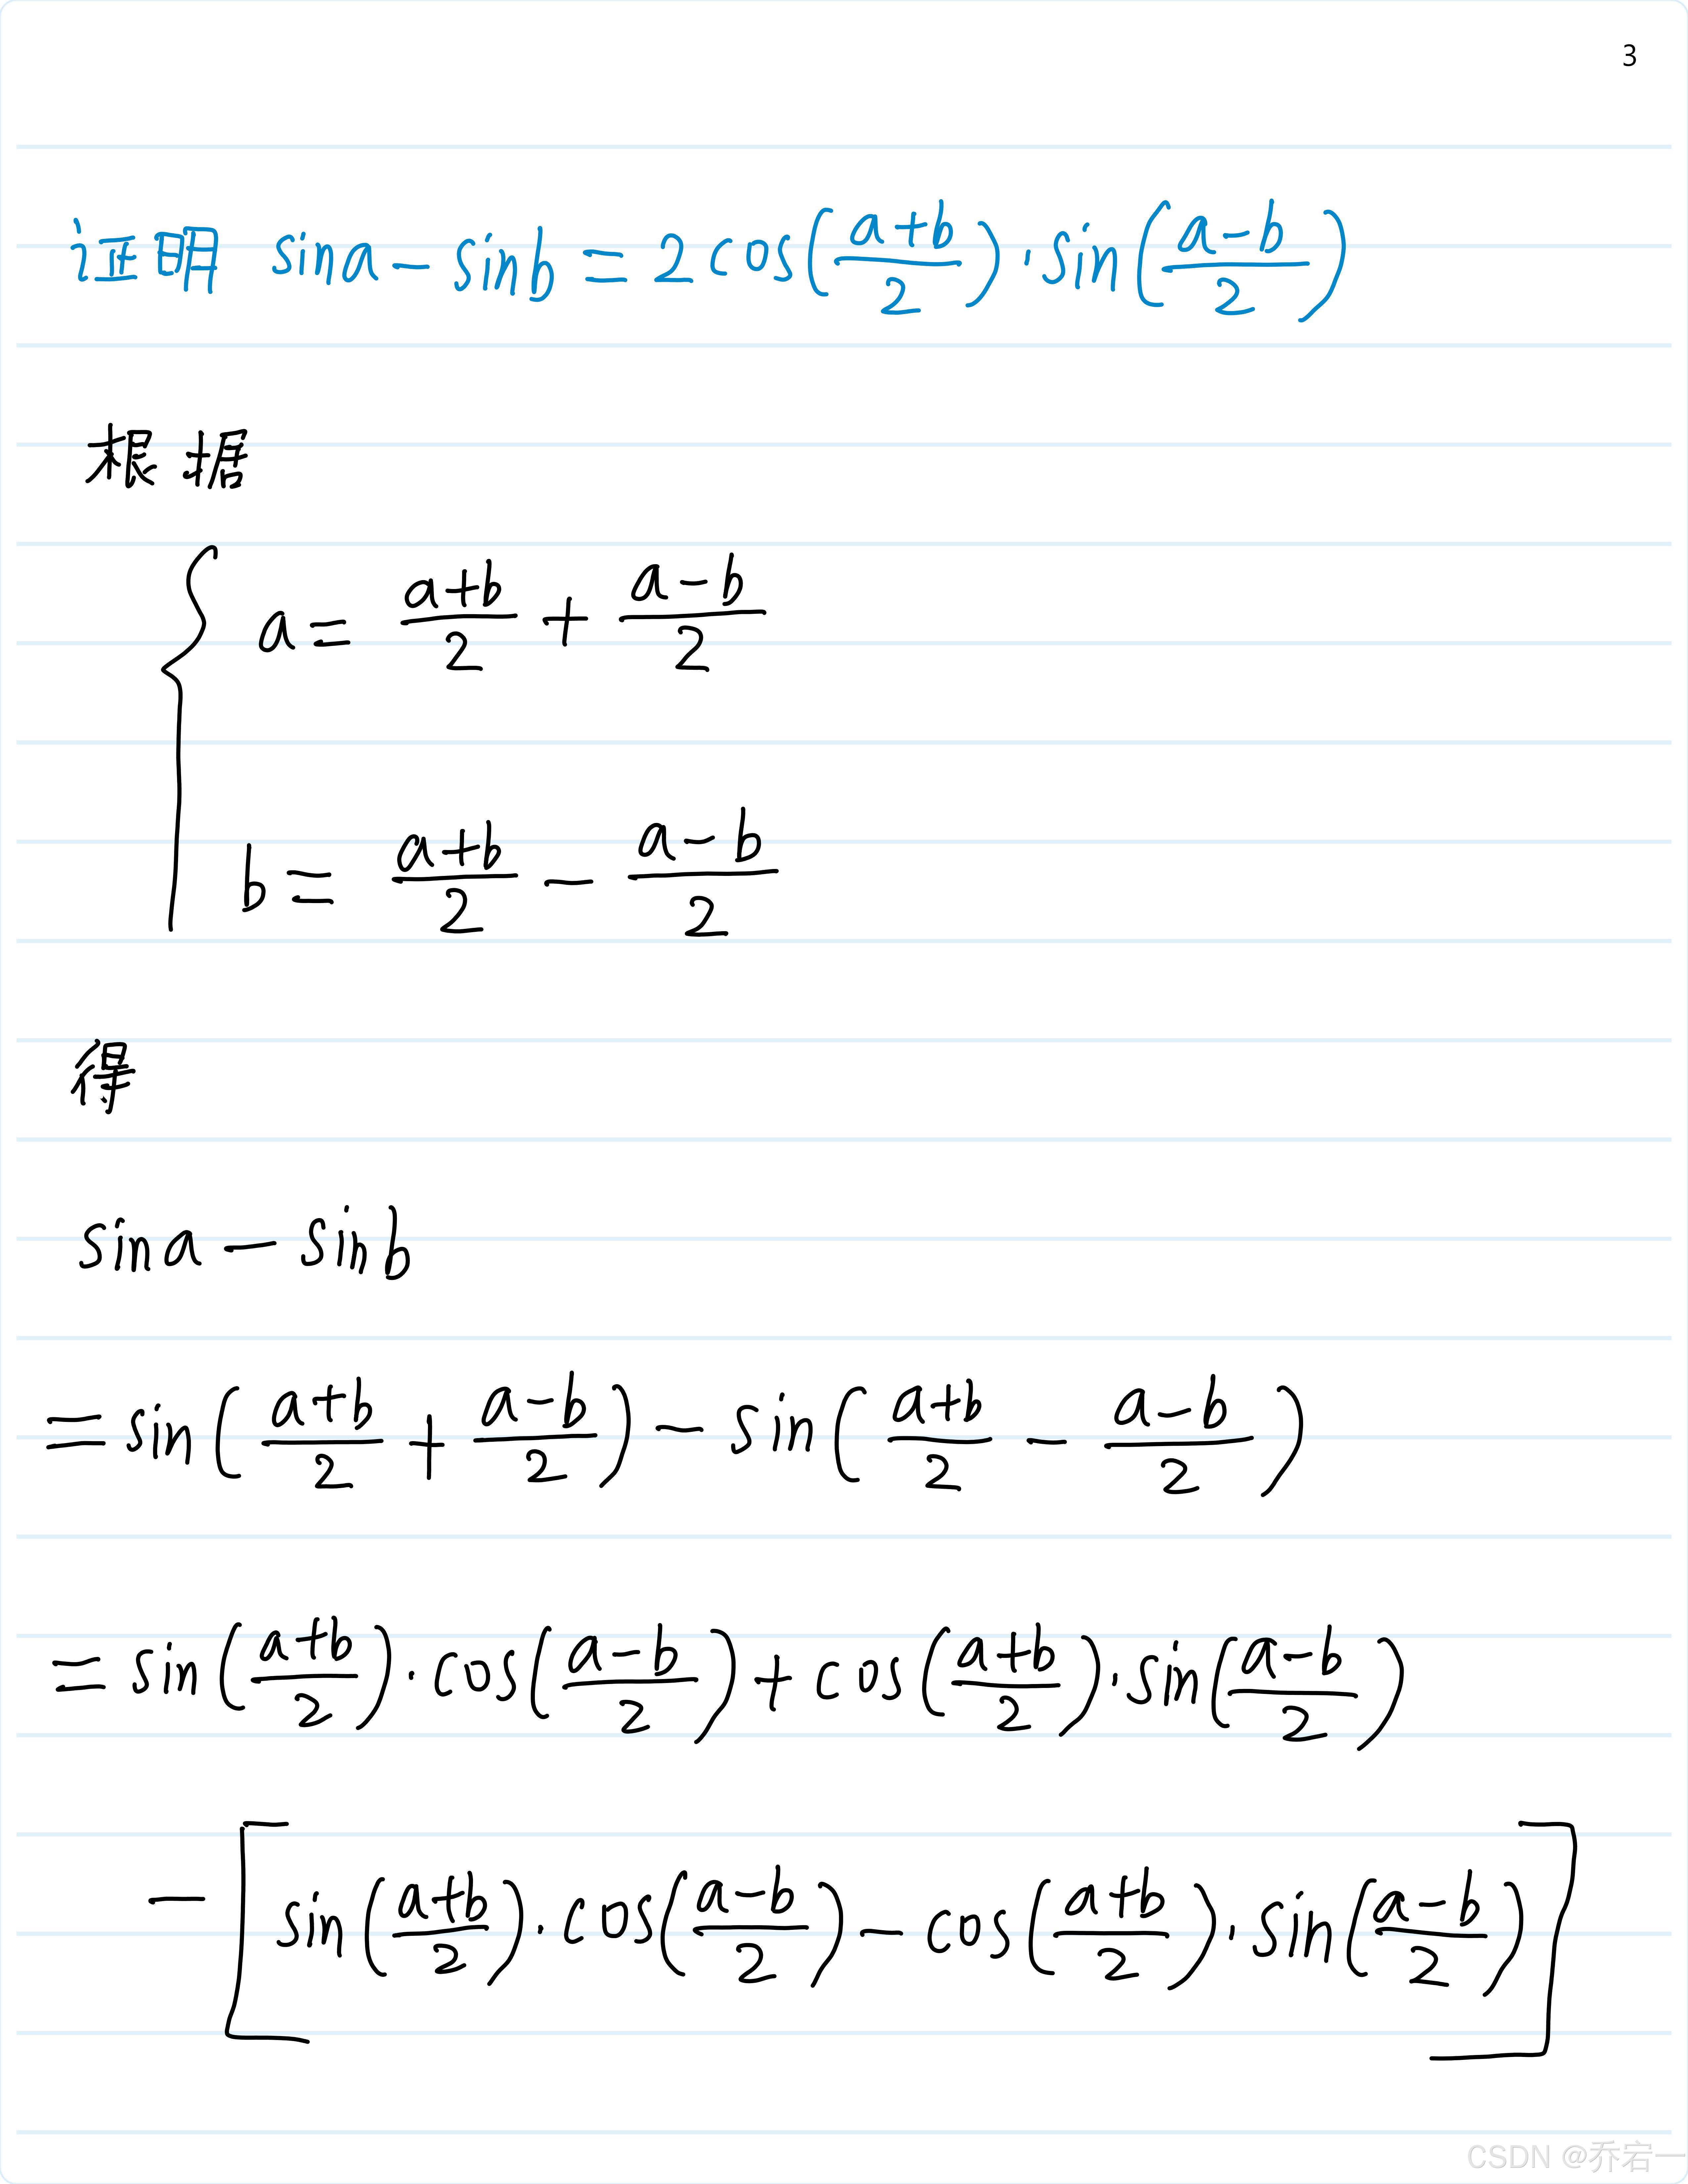 3
证明 sina - sinb = 2cos((a+b)/2)·sin((a-b)/2)
根据
a = (a+b)/2 + (a-b)/2
b = (a+b)/2 - (a-b)/2
得
sina - sinb
= sin((a+b)/2 + (a-b)/2) - sin((a+b)/2 - (a-b)/2)
= sin((a+b)/2)·cos((a-b)/2) + cos((a+b)/2)·sin((a-b)/2)
- [sin((a+b)/2)·cos((a-b)/2) - cos((a+b)/2)·sin((a-b)/2)]
CSDN @乔宕一